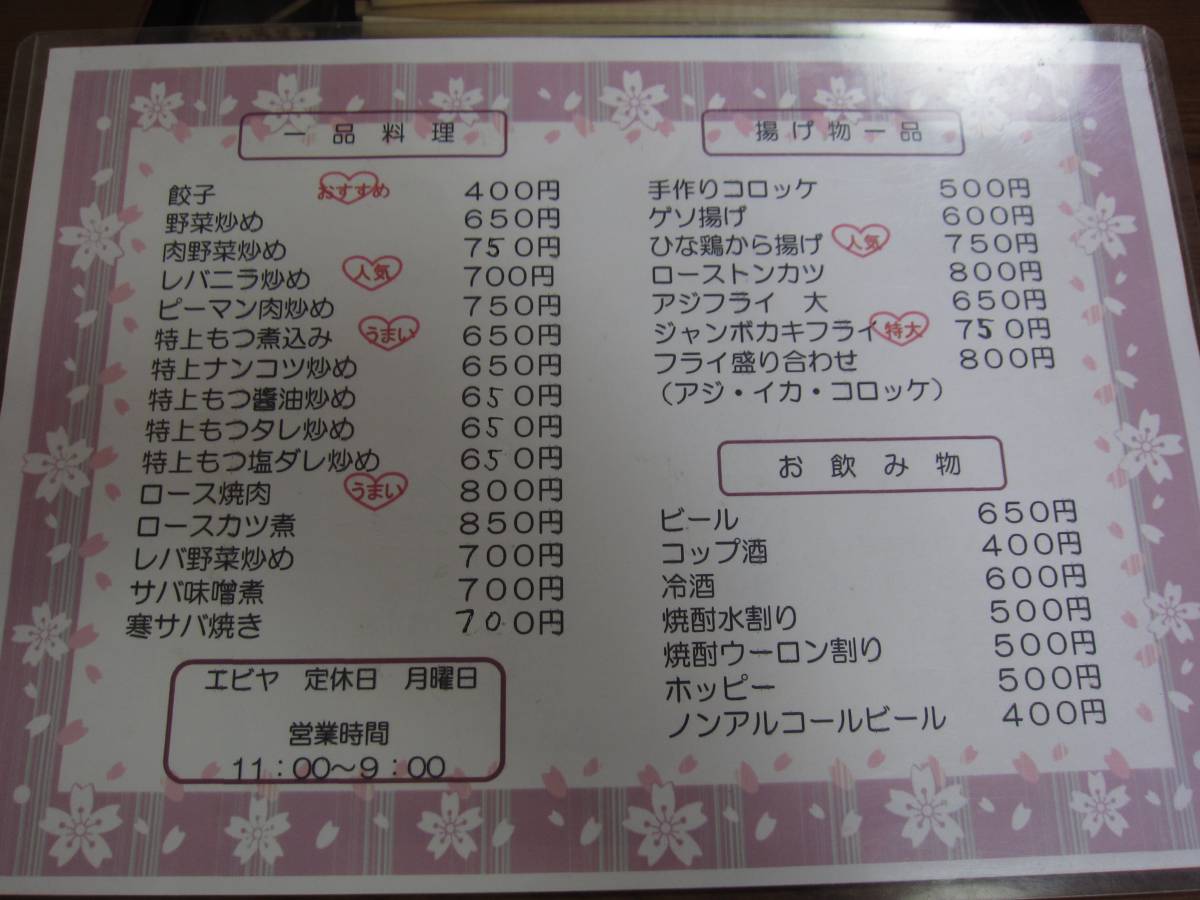 一品料理
餃子 おすすめ 400円
野菜炒め 650円
肉野菜炒め 750円
レバニラ炒め 人気 700円
ピーマン肉炒め 750円
特上もつ煮込み うまい 650円
特上ナンコツ炒め 650円
特上もつ醬油炒め 650円
特上もつタレ炒め 650円
特上もつ塩ダレ炒め 650円
ロース焼肉 うまい 800円
ロースカツ煮 850円
レバ野菜炒め 700円
サバ味噌煮 700円
寒サバ焼き 700円
エビヤ 定休日 月曜日
営業時間
11:00〜9:00
揚げ物一品
手作りコロッケ 500円
ゲソ揚げ 600円
ひな鶏から揚げ 人気 750円
ローストンカツ 800円
アジフライ 大 650円
ジャンボカキフライ 特大 750円
フライ盛り合わせ 800円
(アジ・イカ・コロッケ)
お飲み物
ビール 650円
コップ酒 400円
冷酒 600円
焼酎水割り 500円
焼酎ウーロン割り 500円
ホッピー 500円
ノンアルコールビール 400円